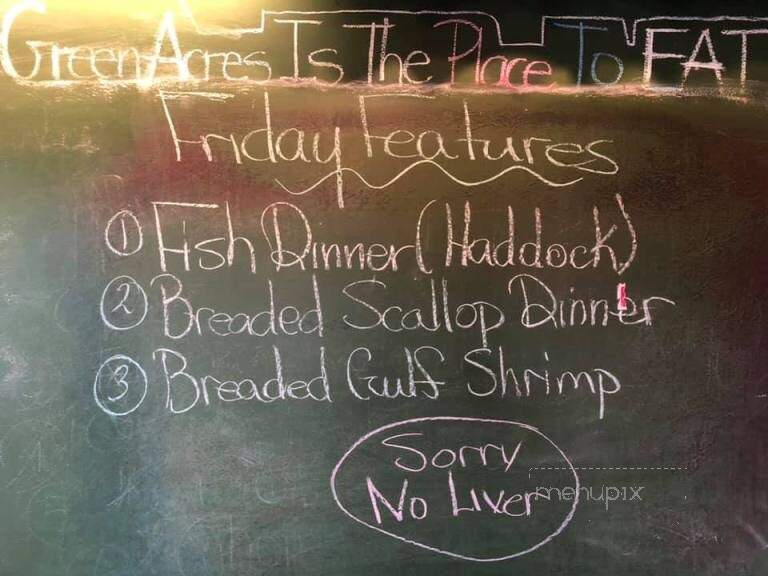 Green Acres Is The Place To EAT
Friday Features
① Fish Dinner (Haddock)
② Breaded Scallop Dinner
③ Breaded Gulf Shrimp
Sorry
No Liver
menupix